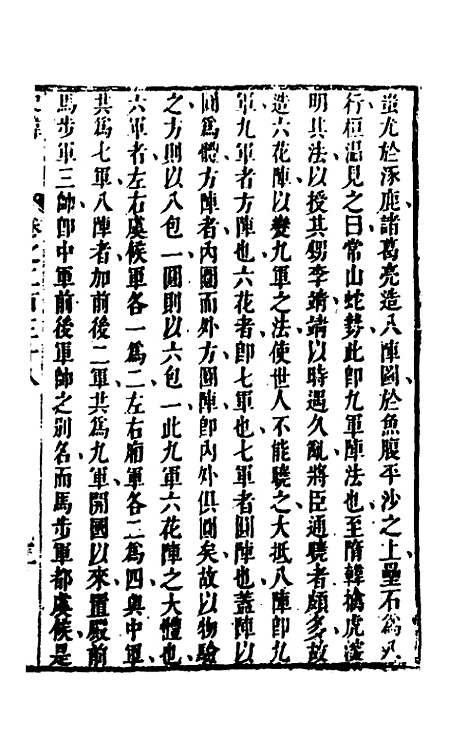 蚩尤於涿鹿諸葛亮造八陣圖於魚腹平沙之上壘石爲八
行桓温見之曰常山蛇勢此卽九軍陣法也至隋韓擒虎深
明其法以授其甥李靖靖以時遇久亂將臣通曉者頗多故
造六花陣以變九軍之法使世人不能曉之大抵八陣卽九
軍九軍者方陣也六花者卽七軍也七軍者圓陣也葢陣以
圓爲體方陣者內圓而外方圓陣卽內外俱圓矣故以物驗
之方則以八包一圓則以六包一此九軍六花陣之大體也
六軍者左右虞候軍各一爲二左右廂軍各二爲四與中軍
共爲七軍八陣者加前後二軍共爲九軍開國以來置殿前
馬步軍三帥卽中軍前後軍帥之別名而馬步軍都虞候是
卷之二百三十八